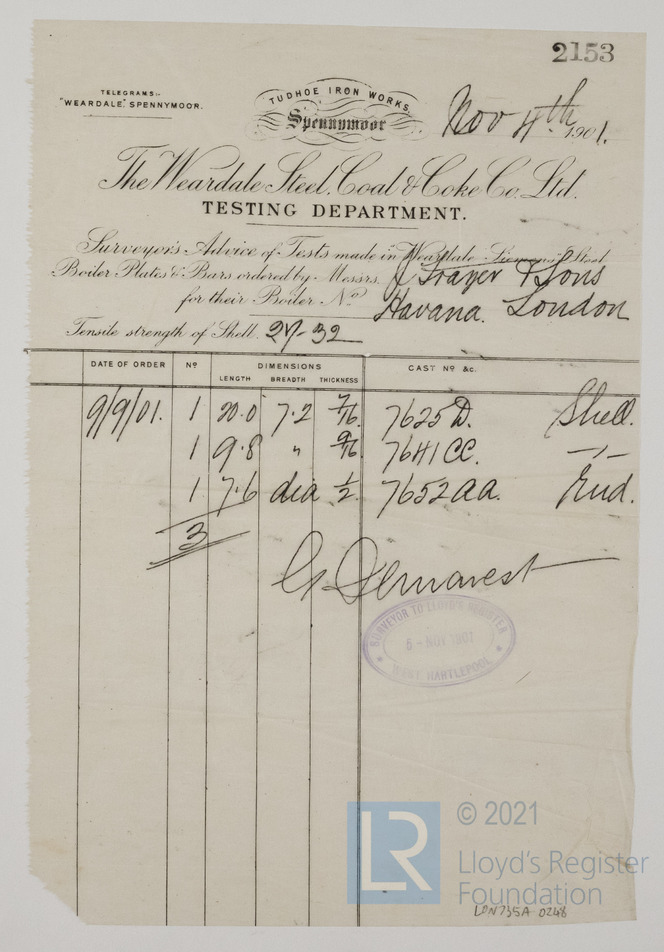 2153
TELEGRAMS:-
"WEARDALE" SPENNYMOOR.
TUDHOE IRON WORKS,
Spennymoor
Nov 4th 1901.
The Weardale Steel, Coal & Coke Co. Ltd.
TESTING DEPARTMENT.
Surveyor's Advice of Tests made in Weardale Siemens Steel
Boiler Plates & Bars ordered by Messrs. J Fraser & Sons
for their Boiler No. Havana. London
Tensile strength of Shell. 27-32
DATE OF ORDER No DIMENSIONS CAST No &c.
LENGTH BREADTH THICKNESS
9/9/01. 1 20.0 7.2 7/16 7625 D. Shell.
1 9.8 " 9/16 7641 CC. -,-
1 7.6 dia 1/2 7652 aa. End.
3
G Demarest
SURVEYOR TO LLOYD'S REGISTER
5 - NOV 1901
WEST HARTLEPOOL
LR
© 2021
Lloyd's Register
Foundation
LON735A 0248